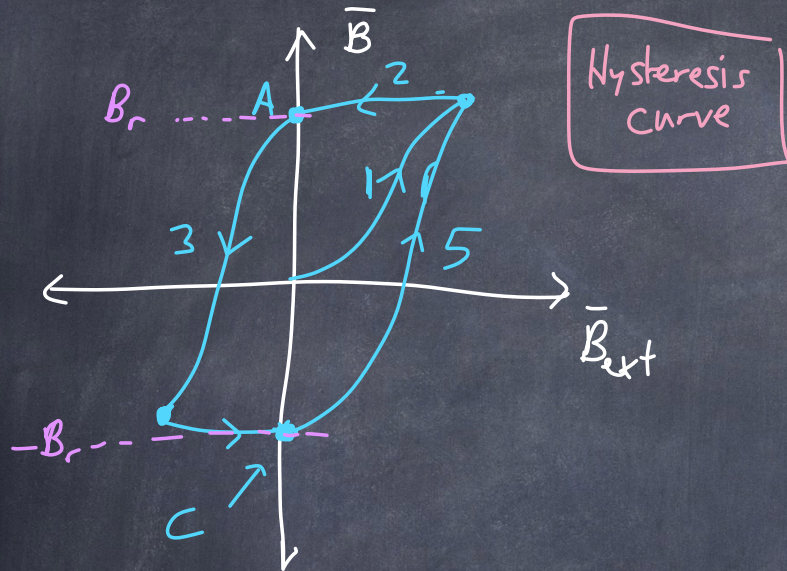 B̅
Hysteresis
curve
2
A
B_r
1
3
5
B̅_ext
-B_r
C